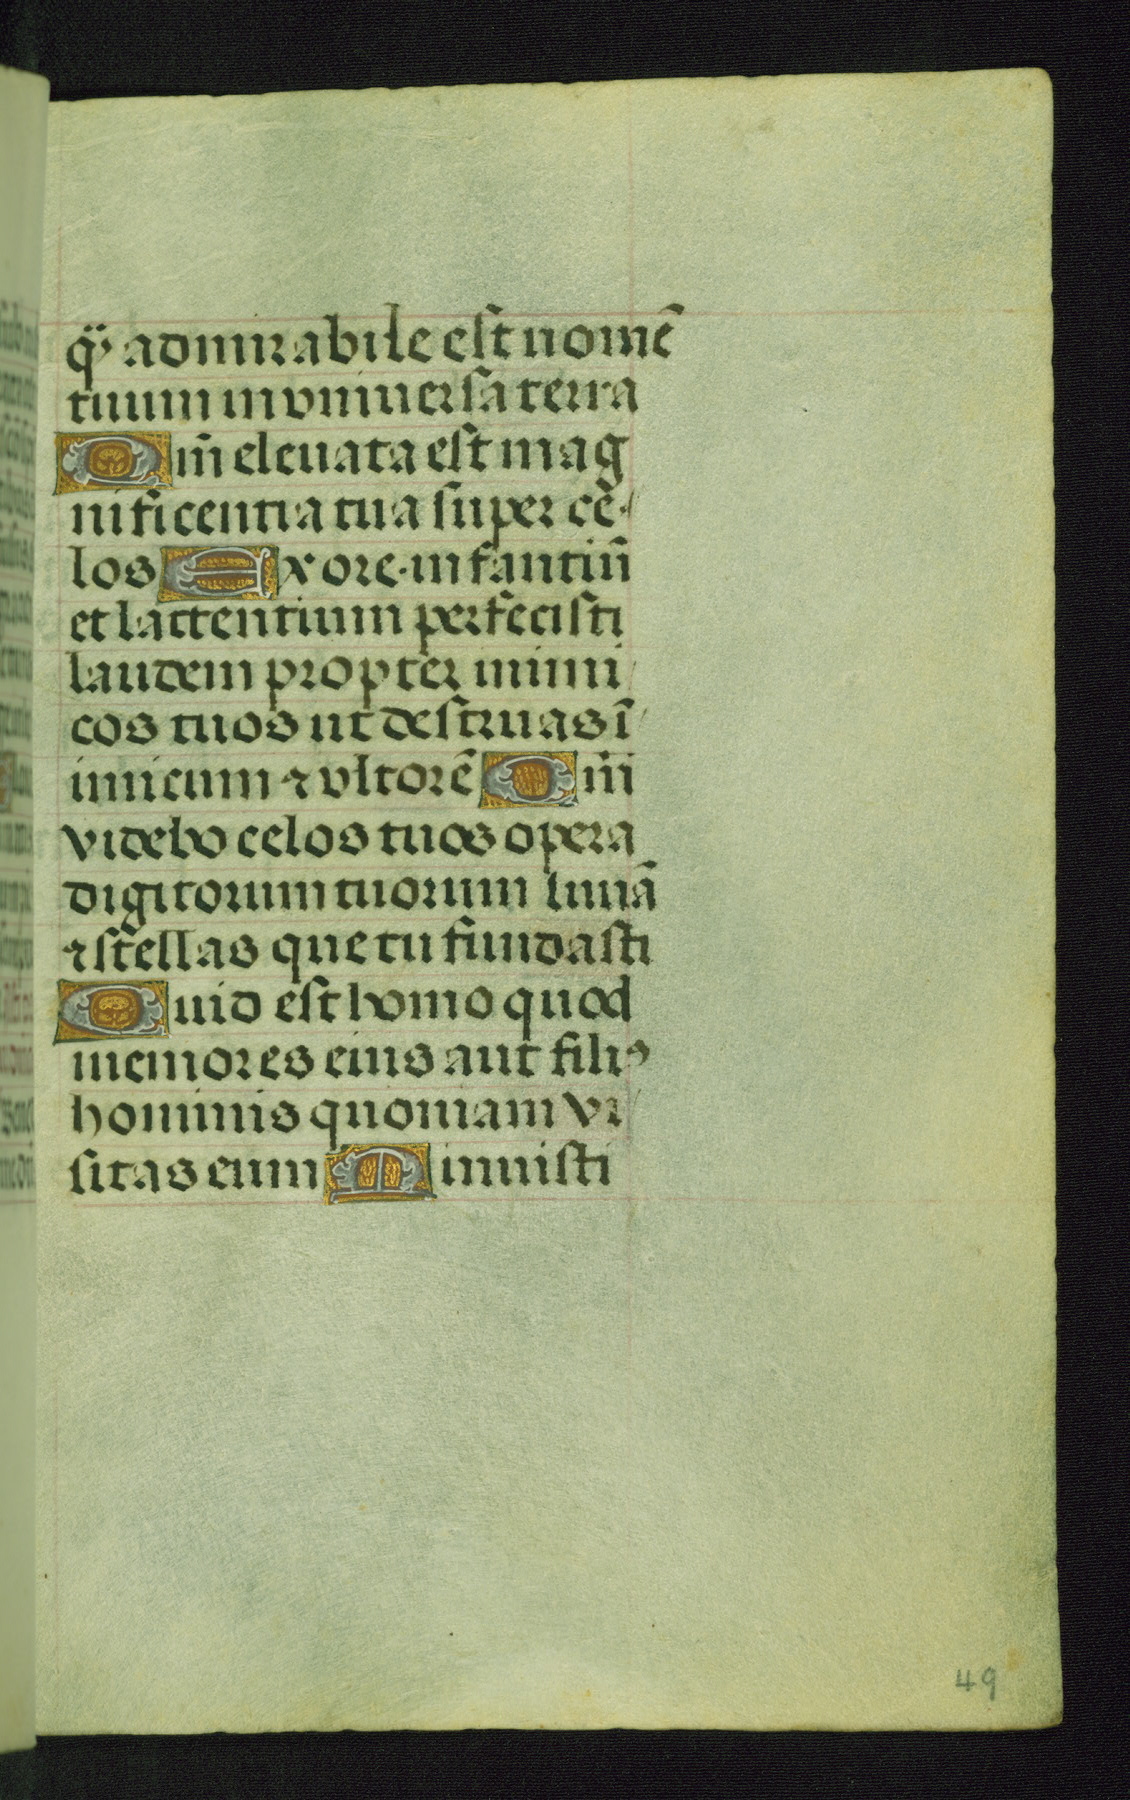 q̃ꝫ admirabile est nomē
tuum in vniuersa terra
Qm̄ eleuata est mag
nificentia tua super cē
los Ex ore·infantiū
et lactentium perfecisti
laudem propter inimi
cos tuos ut destruas ī
imicum ⁊ vltorē Qm̄
videbo celos tuos opera
digitorum tuorum lunā
⁊ stellas que tu fundasti
Quid est homo quod
memores eius aut filiꝰ
hominis quoniam vi
sitas eum Minuisti
49